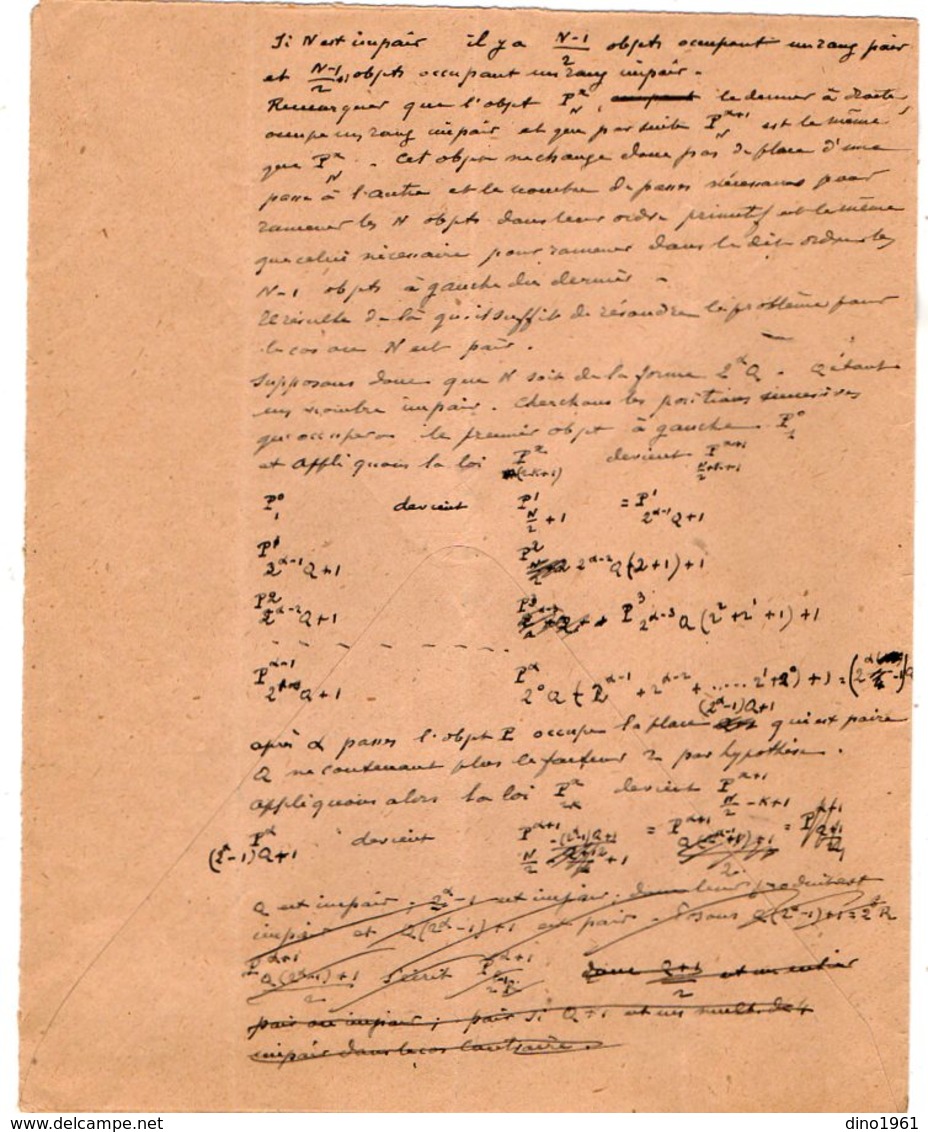 Si N est impair il y a N-1/2 objets occupant un rang pair
et N-1/2 +1 objets occupant un rang impair -
Remarquer que l'objet P^x_N, le dernier à droite,
occupe un rang impair et que par suite P^x+1_N est le même
que P^x_N. Cet objet ne change donc pas de place d'une
passe à l'autre et le nombre de passes nécessaires pour
ramener les N objets dans leur ordre primitif est le même
que celui nécessaire pour ramener dans le dit ordre les
N-1 objets à gauche du dernier -
Il résulte de là qu'il suffit de résoudre le problème pour
le cas où N est pair.
Supposons donc que N soit de la forme 2^α Q. Q étant
un nombre impair. Cherchons les positions successives
qu'occupera le premier objet à gauche P^0_1
et appliquons la loi P^x_(2K+1) devient P^x+1_N/2+K+1
P^0_1 devient P^1_N/2+1 = P^1_2^α-1 Q+1
P^1_2^α-1 Q+1 P^2_2^α-2 Q(2+1)+1
P^2_2^α-2 Q+1 P^3_2^α-3 Q(2^2+2^1+1)+1
P^α-1 Q+1 P^α_2^0 Q(2^α-1+2^α-2+.....2^1+2^0)+1=(2^α-1)Q
(2^α-1)Q+1
après α passes l'objet P occupe la place qui est paire
Q ne contenant plus le facteur 2 par hypothèse.
Appliquons alors la loi P^x_2K devient P^x+1_N/2-K+1
P^α_(2^α-1)Q+1 devient P^α+1 = P^α+1 = P^α+1_Q+1/2
Q est impair, 2^α-1 est impair, donc leur produit est
impair et Q(2^α-1)+1 est pair. Posons Q(2^α-1)+1=2 R
P^α+1_Q(2^α-1)+1/2 s'écrit P^α+1 donc Q+1/2 est un entier
pair ou impair; pair si Q+1 est un mult. de 4
impair dans le cas contraire.
dino1961